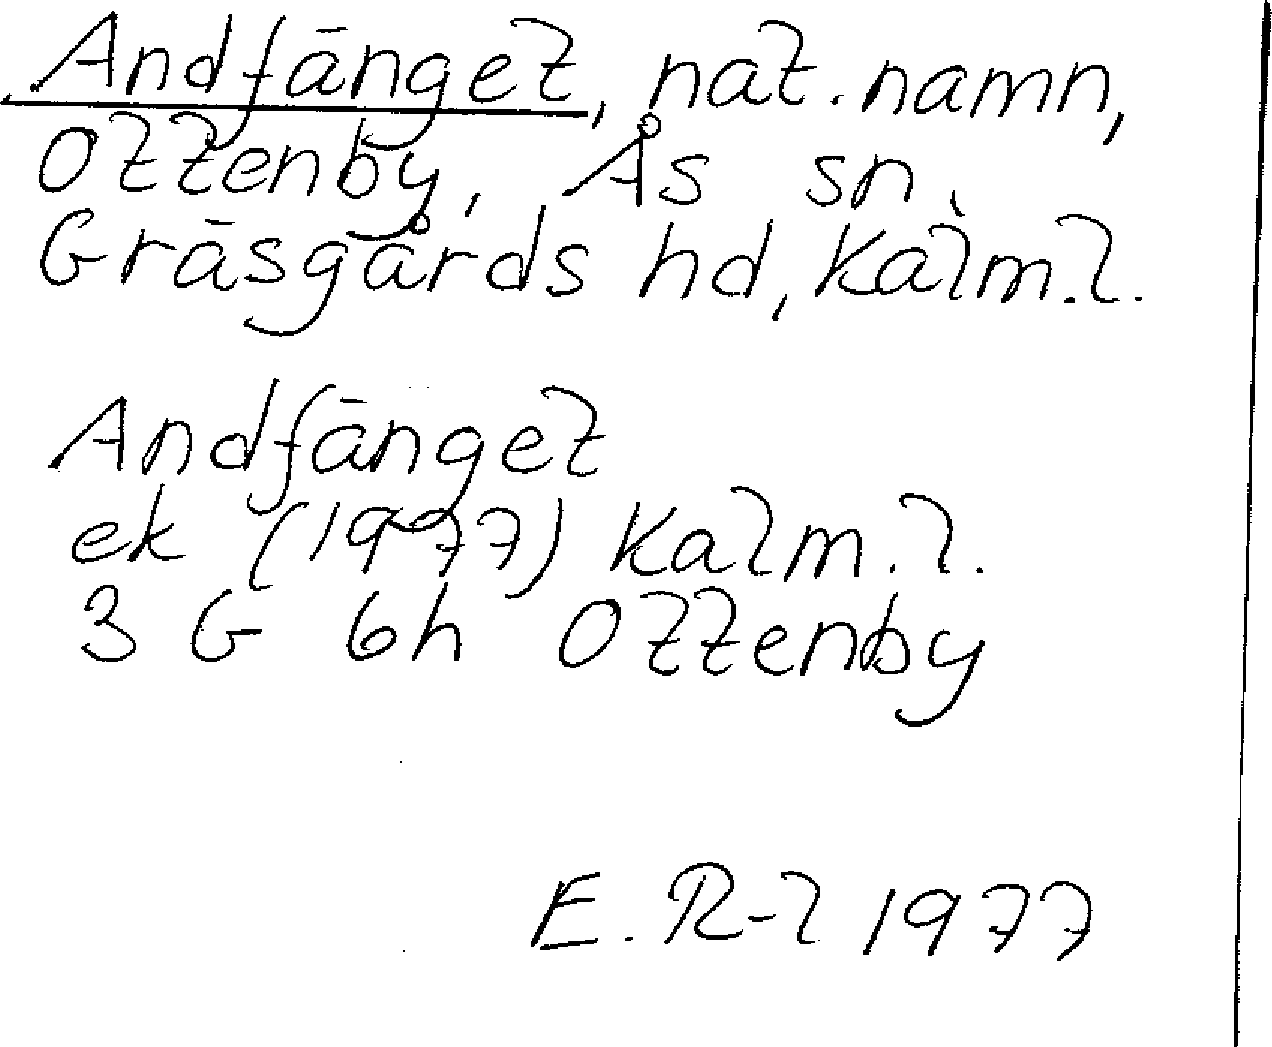 Andfänget, nat. namn,
Ottenby, Ås sn
Gräsgårds hd, Kalm.l.
Andfänget
ek (1977) Kalm.l.
3 G 6h Ottenby
E. R-l 1977